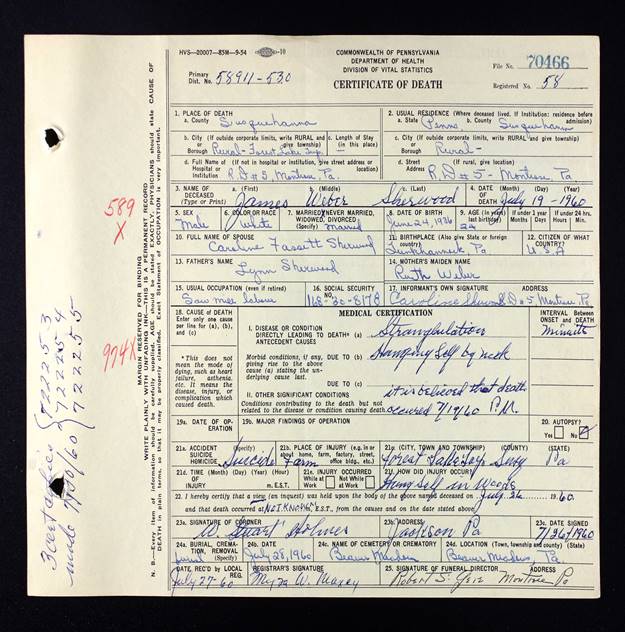 HVS—20007—85M—9-54 10
COMMONWEALTH OF PENNSYLVANIA
DEPARTMENT OF HEALTH
DIVISION OF VITAL STATISTICS
CERTIFICATE OF DEATH
File No. 70466
Registered No. 58
Primary Dist. No. 58911-530
1. PLACE OF DEATH
a. County Susquehanna
2. USUAL RESIDENCE (Where deceased lived. If institution: residence before admission)
a. State Penna b. County Susquehanna
b. City (If outside corporate limits, write RURAL and give township) or Borough Rural- Forest Lake Twp.
c. Length of Stay (in this place)
c. City (If outside corporate limits, write RURAL and give township) or Borough Rural-
d. Full Name of (If not in hospital or institution, give street address or location) Hospital or Institution R.D #5, Montrose, Pa.
d. Street Address (If rural, give location) R.D #5- Montrose, Pa.
3. NAME OF DECEASED (Type or Print) a. (First) James b. (Middle) Weber c. (Last) Sherwood
4. DATE OF DEATH (Month) (Day) (Year) July 19-1960
5. SEX Male
6. COLOR OR RACE White
7. MARRIED, NEVER MARRIED, WIDOWED, DIVORCED (Specify) Married
8. DATE OF BIRTH June 24, 1936
9. AGE (In years last birthday) 24
If under 1 year Months Days
If under 24 hrs. Hours Min.
10. FULL NAME OF SPOUSE Caroline Fassett Sherwood
11. BIRTHPLACE (Also give State or foreign country) Tunkhannock, Pa
12. CITIZEN OF WHAT COUNTRY? U.S.A
13. FATHER'S NAME Lynn Sherwood
14. MOTHER'S MAIDEN NAME Ruth Weber
15. USUAL OCCUPATION (even if retired) Saw mill laborer
16. SOCIAL SECURITY NO. 168-30-8178
17. INFORMANT'S OWN SIGNATURE ADDRESS Caroline Sherwood R.D #5 Montrose Pa
18. CAUSE OF DEATH
Enter only one cause per line for (a), (b), and (c)
MEDICAL CERTIFICATION
INTERVAL Between ONSET and DEATH
I. DISEASE OR CONDITION DIRECTLY LEADING TO DEATH* (a) Strangulation Minutes
ANTECEDENT CAUSES
*This does not mean the mode of dying, such as heart failure, asthenia, etc. It means the disease, injury, or complication which caused death.
Morbid conditions, if any, giving rise to the above cause (a) stating the underlying cause last.
DUE TO (b) Hanging self by neck
DUE TO (c)
II. OTHER SIGNIFICANT CONDITIONS
Conditions contributing to the death but not related to the disease or condition causing death.
it is believed that death occured 7/19/60 P.M.
19a. DATE OF OPERATION
19b. MAJOR FINDINGS OF OPERATION
20. AUTOPSY? Yes No
21a. ACCIDENT SUICIDE HOMICIDE (Specify) Suicide
21b. PLACE OF INJURY (e.g. in or about home, farm, factory, street, office bldg., etc.) Farm
21c. (CITY, TOWN AND TOWNSHIP) (COUNTY) (STATE) Forest Lake Twp Susq Pa
21d. TIME (Month) (Day) (Year) (Hour) OF INJURY m. EST.
21e. INJURY OCCURRED While at Work Not While at Work
21f. HOW DID INJURY OCCUR? Hung self in woods
22. I hereby certify that a view (an inquest) was held upon the body of the above named deceased on July 26 1960.
and that death occurred at NOT KNOWN EST., from the causes and on the date stated above
23a. SIGNATURE OF CORONER W. Stuart Holmes
23b. ADDRESS Jackson Pa
23c. DATE SIGNED 7/26/1960
24a. BURIAL, CREMATION, REMOVAL (Specify) burial
24b. DATE July 28, 1960
24c. NAME OF CEMETERY OR CREMATORY Beaver Meadows
24d. LOCATION (Town, township and county) (State) Beaver Meadows, Pa.
DATE REC'D BY LOCAL REG. July-27-60
REGISTRAR'S SIGNATURE Myra W. Maxey
25. SIGNATURE OF FUNERAL DIRECTOR ADDRESS Montrose Pa
MARGIN RESERVED FOR BINDING
WRITE PLAINLY WITH UNFADING INK—THIS IS A PERMANENT RECORD
N. B.—Every item of information should be carefully supplied. AGE should be stated EXACTLY. PHYSICIANS should state CAUSE OF DEATH in plain terms, so that it may be properly classified. Exact Statement of OCCUPATION is very important.
589
X
974X
722253
722254
722255
made 7/30/60